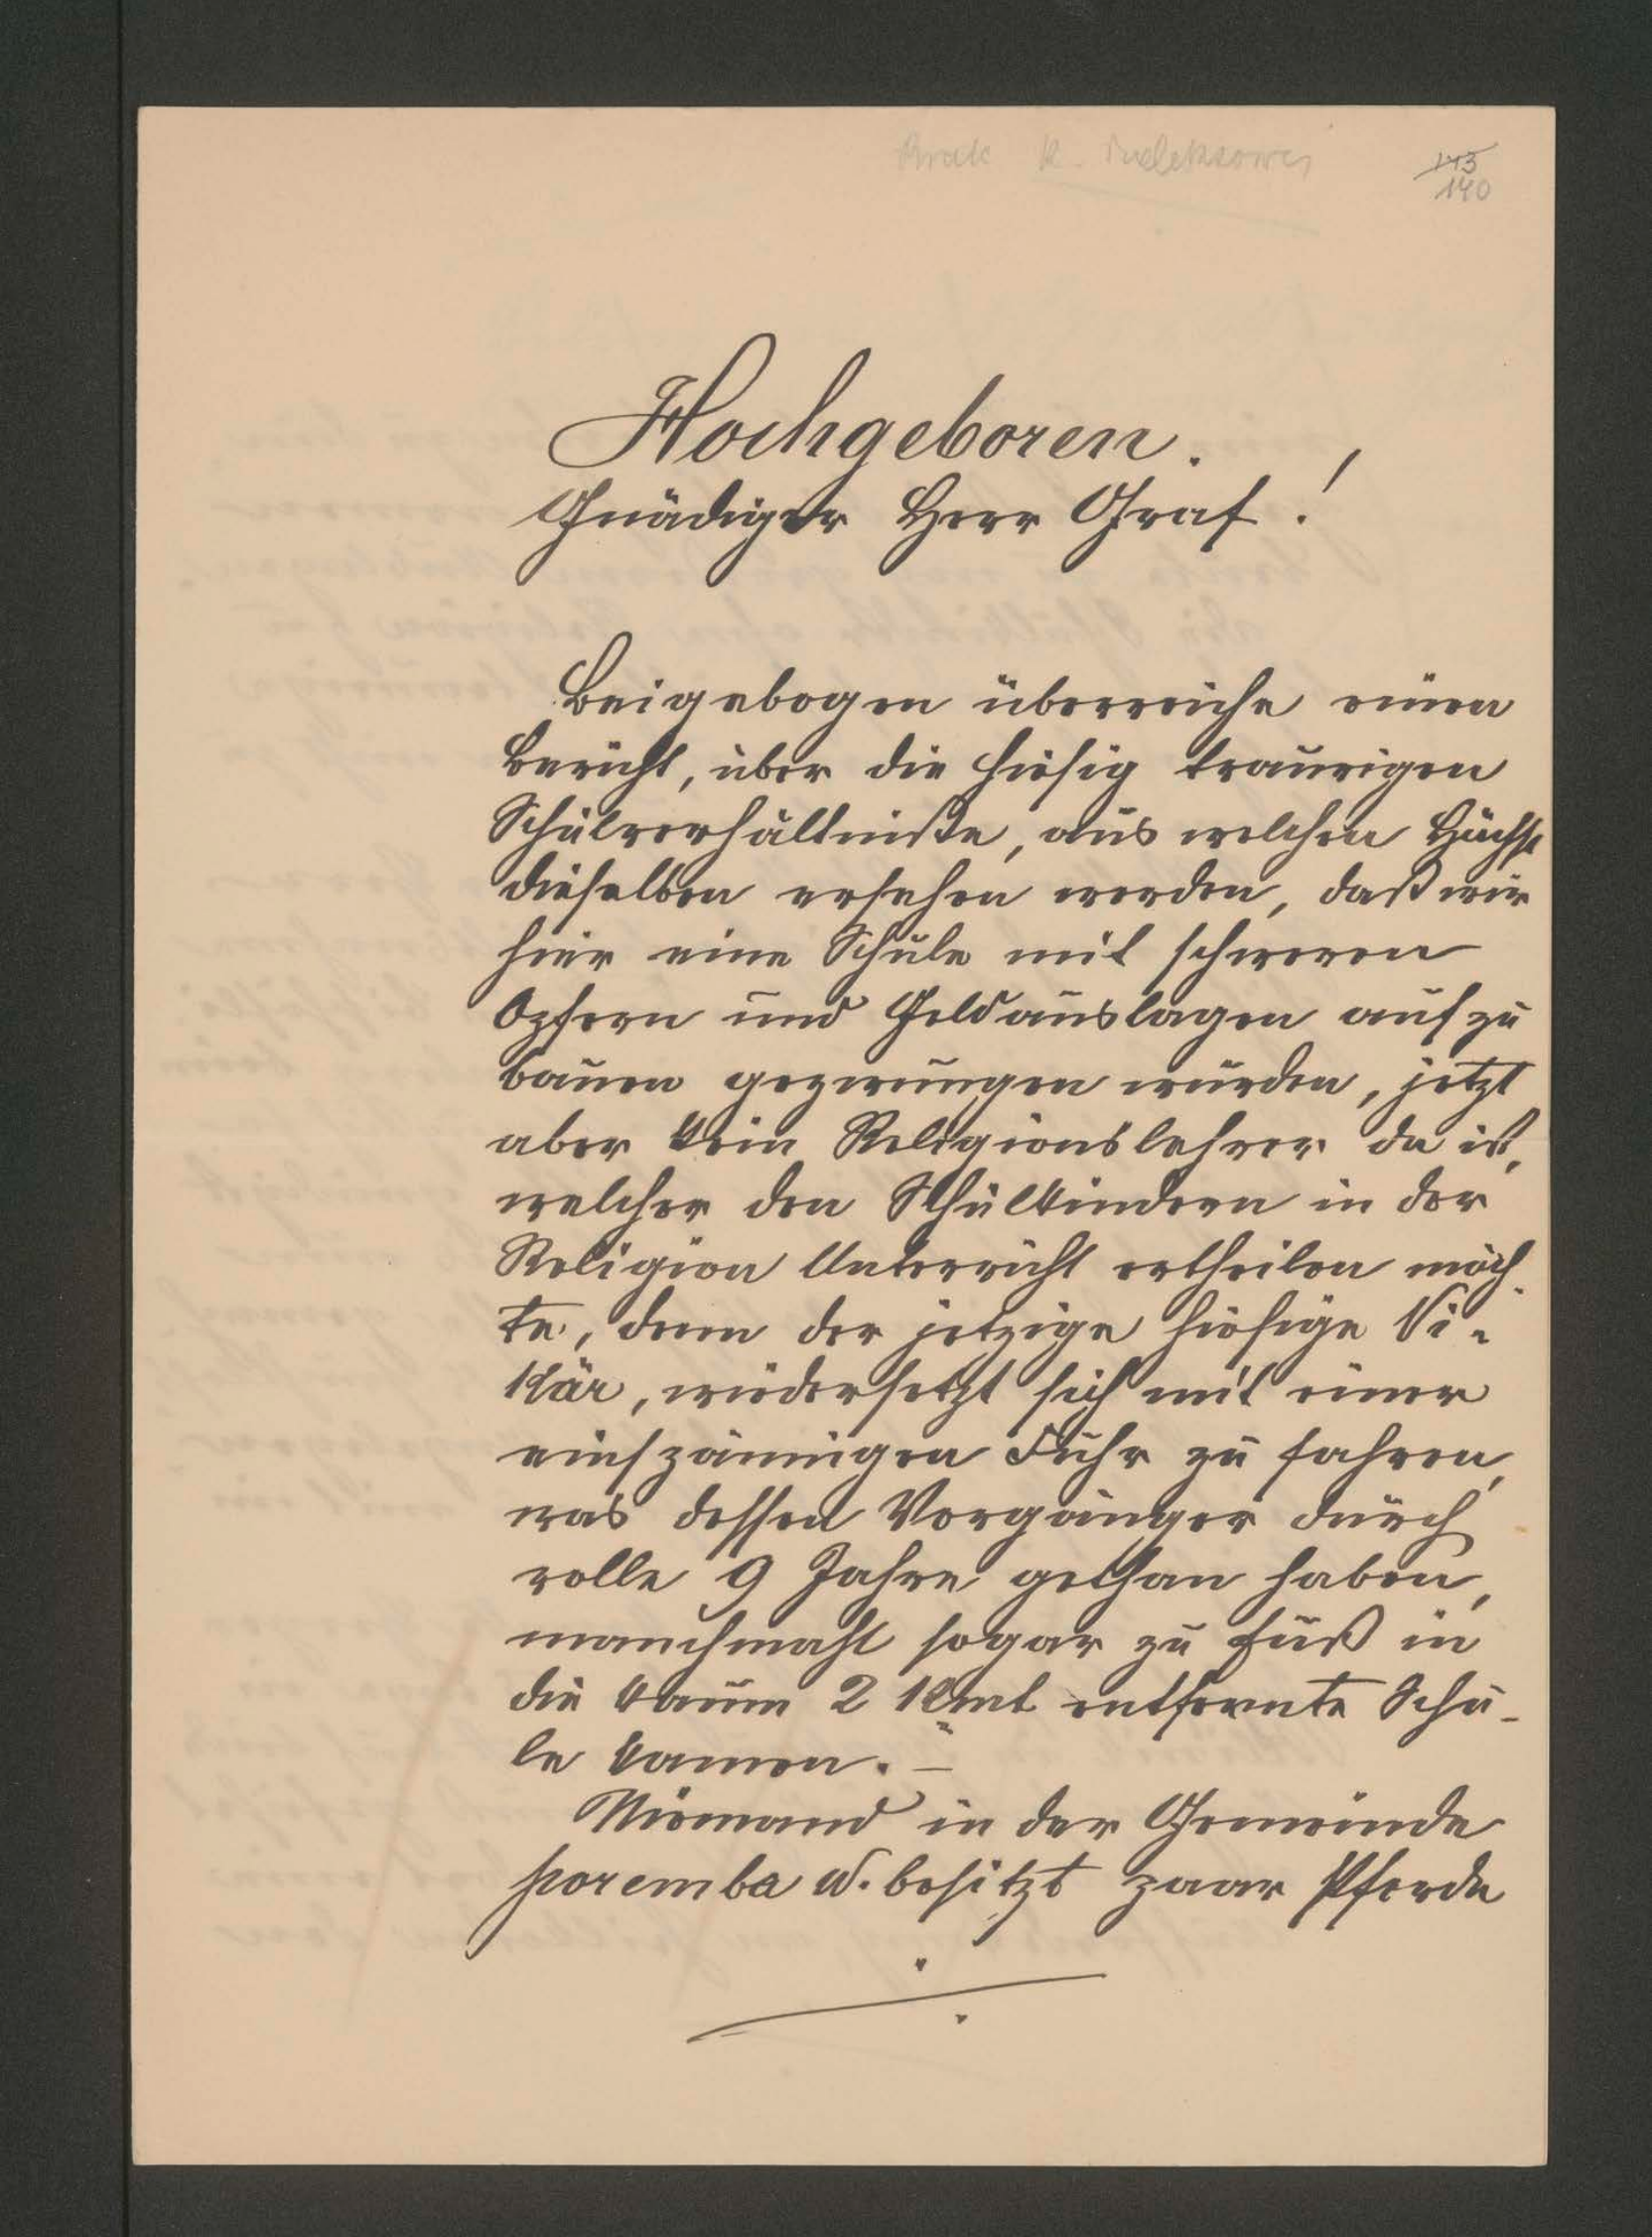 Brak k. indeksowej
143
140
Hochgeboren.
Gnädiger Herr Graf!
Beigebogen überreiche einen
Bericht, über die hiesig traurigen
Schulverhältniße, aus welchen Höchst
dieselben ersehen werden, daß wir
hier eine Schule mit schweren
Opfern und Geldauslagen auf zu
bauen gezwungen wurden, jetzt
aber kein Religionslehrer da ist,
welcher den Schulkindern in der
Religion Unterricht ertheilen möch-
te, denn der jetzige hiesige Vi-
kar, wiedersetzt sich mit einer
einspännigen Fuhr zu fahren,
was dessen Vorgänger durch
volle 9 Jahre gethan haben,
manchmahl sogar zu Fuß in
die kaum 2 Kmt entfernte Schu-
le kamen. –
Niemand in der Gemeinde
Poremba W. besitzt paar Pferde